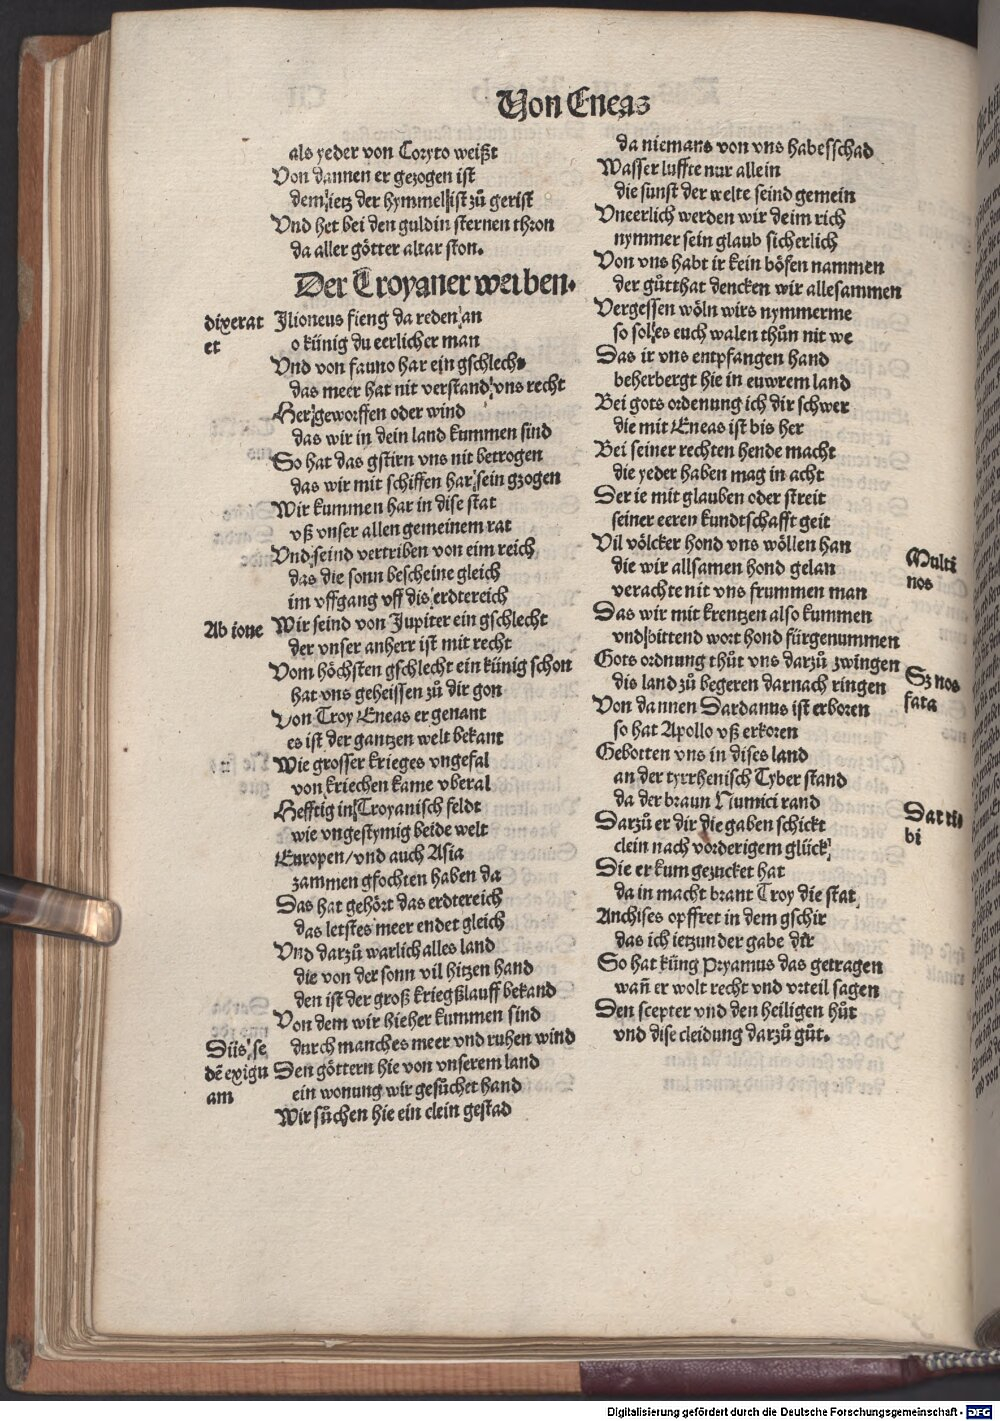 Von Eneas
als yeder von Coryto weißt
Von dannen er gezogen ist
dem ietz der hymmel ist zů gerist
Vnd het bei den guldin sternen thron
da aller götter altar ston.
Der Troyaner werben.
dixerat
et
Jlioneus fieng da reden an
o künig du eerlicher man
Vnd von fauno har ein gschlecht
das meer hat nit verstand vns recht
Her geworffen oder wind
das wir in dein land kummen sind
So hat das gstirn vns nit betrogen
das wir mit schiffen har sein gzogen
Wir kummen har in dise stat
vß vnser allen gemeinem rat
Vnd seind vertriben von eim reich
das die sonn bescheine gleich
im vffgang vff dis erdtereich
Ab ioue
Wir seind von Jupiter ein gschlecht
der vnser anherr ist mit recht
Vom höchsten gschlecht ein künig schon
hat vns geheissen zů dir gon
Von Troy Eneas er genant
es ist der gantzen welt bekant
Wie grosser krieges vngefal
von kriechen kame vberal
Hefftig in Troyanisch feldt
wie vngestymig beide welt
Europen/vnd auch Asia
zammen gfochten haben da
Das hat gehört das erdtereich
das letstes meer endet gleich
Vnd darzů warlich alles land
die von der sonn vil hitzen hand
den ist der groß kriegßlauff bekand
Von dem wir hieher kummen sind
durch manches meer vnd ruhen wind
Diis se
dē exigu
am
Den göttern hie von vnserem land
ein wonung wir gesůchet hand
Wir sůchen hie ein clein gestad
da niemans von vns hab esschad
Wasser luffte nur allein
die sunst der welte seind gemein
Vneerlich werden wir deim rich
nymmer sein glaub sicherlich
Von vns habt ir kein bösen nammen
der gůtthat dencken wir allesammen
Vergessen wöln wirs nymmerme
so sol es euch walen thůn nit we
Das ir vns entpfangen hand
beherbergt hie in euwrem land
Bei gots ordenung ich dir schwer
die mit Eneas ist bis her
Bei seiner rechten hende macht
die yeder haben mag in acht
Der ie mit glauben oder streit
seiner eeren kundtschafft geit
Vil völcker hond vns wöllen han
die wir allsamen hond gelan
verachte nit vns frummen man
Multi
nos
Das wir mit krentzen also kummen
vnd bittend wort hond fürgenummen
Gots ordnung thůt vns darzů zwingen
dis land zů begeren darnach ringen
Sz nos
fata
Von dannen Dardanus ist erboren
so hat Apollo vß erkoren
Gebotten vns in dises land
an der tyrrhenisch Tyber stand
da der braun Numici rand
Dat ti-
bi
Darzů er dir die gaben schickt
clein nach vorderigem glück
Die er kum gezucket hat
da in macht brant Troy die stat
Anchises opffret in dem gschir
das ich ietzunder gabe dir
So hat küng Pryamus das getragen
wañ er wolt recht vnd vrteil sagen
Den scepter vnd den heiligen hůt
vnd dise cleidung darzů gůt.
Digitalisierung gefördert durch die Deutsche Forschungsgemeinschaft - DFG